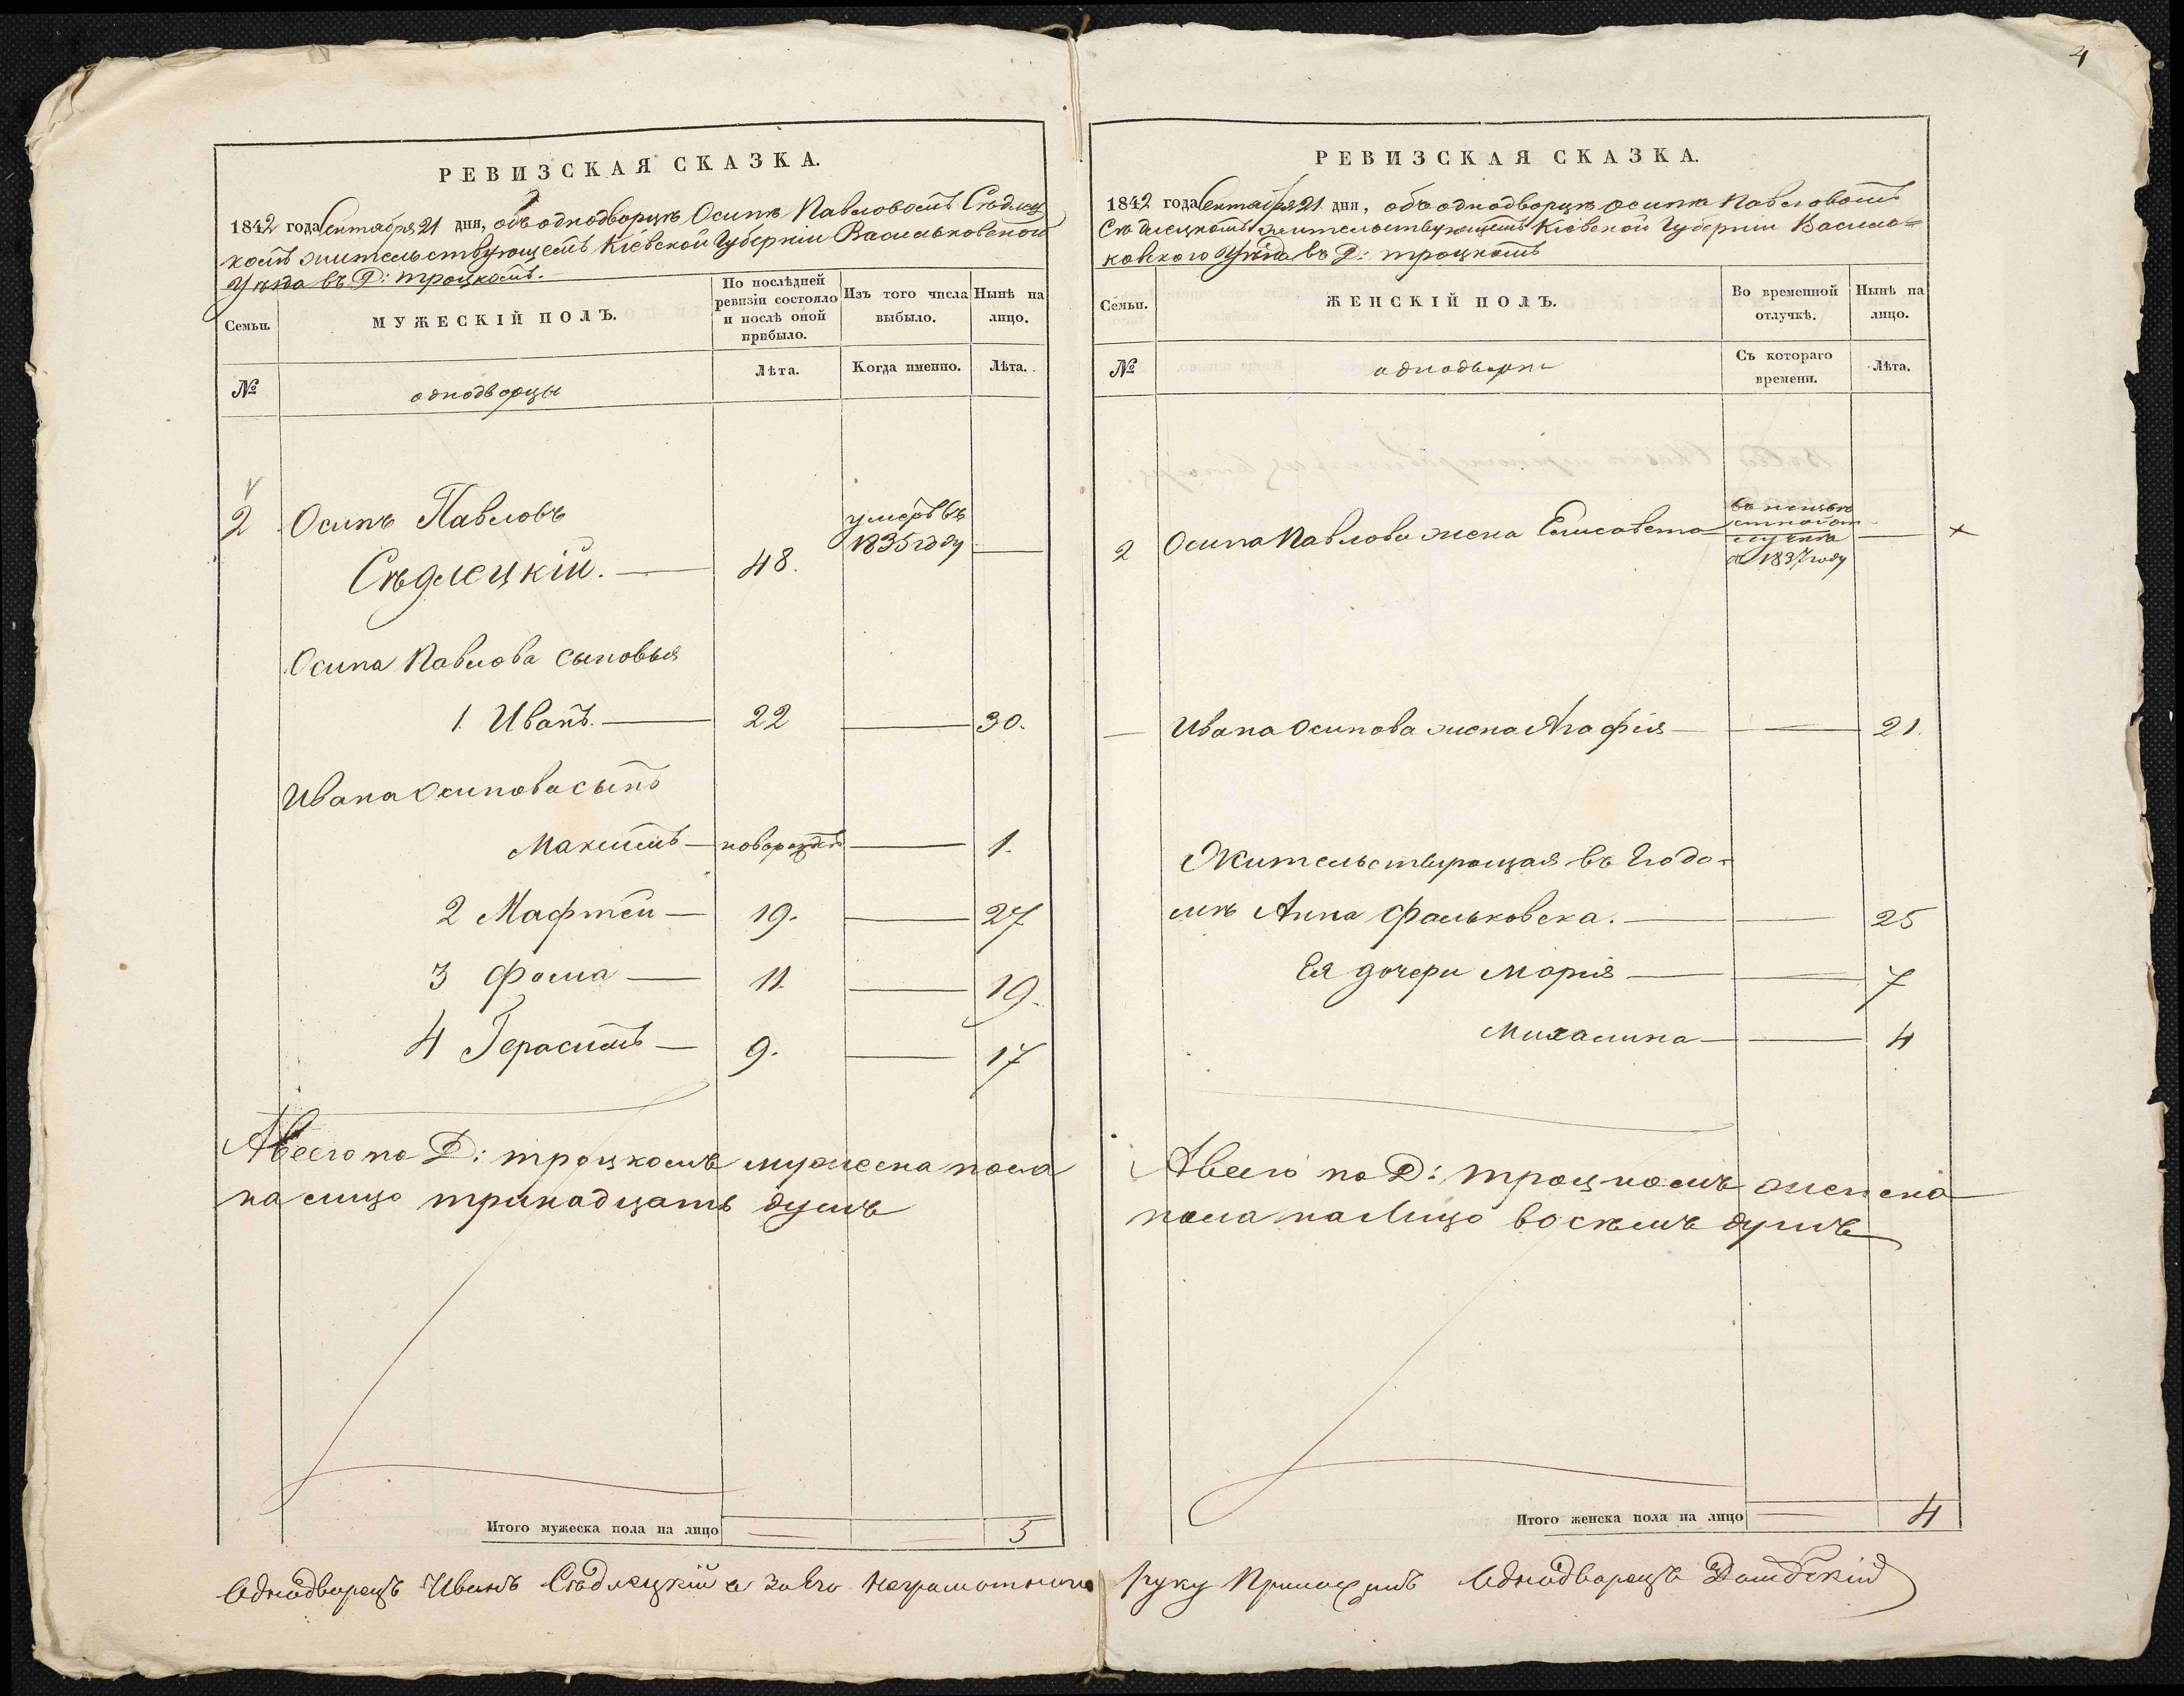 4
РЕВИЗСКАЯ СКАЗКА.
1842 года Сентября 21 дня, объ однодворцѣ Осипѣ Павловомъ Сѣдлец
комъ жительствующемъ Кіевской Губерніи Васильковской
Уѣзда въ Д: троцкомъ.
Семьи.
МУЖЕСКІЙ ПОЛЪ.
По послѣдней ревизіи состояло и послѣ оной прибыло.
Изъ того числа выбыло.
Нынѣ на лицо.
№
однодворцы
Лѣта.
Когда именно.
Лѣта.
2 Осипъ Павловъ
Сѣдлецкій. 48.
умеръ въ
1835 году
Осипа Павлова сыновья
1. Иванъ. 22 30.
Ивана Осипова сынъ
Максимъ новорожд 1.
2 Мафтей 19. 27
3 Фома 11. 19.
4 Герасимъ 9. 17
А всего по Д: троцкомъ мужеска пола
на лицо тринадцать душъ
Итого мужеска пола на лицо 5
РЕВИЗСКАЯ СКАЗКА.
1842 года Сентября 21 дня, объ однодворцѣ осипѣ Павловомъ
Сѣдлецкомъ жительствующемъ Кіевской Губерніи Василь=
ковского Уѣзда въ Д: троцкомъ
Семьи.
ЖЕНСКІЙ ПОЛЪ.
Во временной отлучкѣ.
Нынѣ на лицо.
№
однодворки
Съ котораго времени.
Лѣта.
2 Осипа Павлова жена Елисавета
1837 году
Ивана Осипова жена Агафія 21.
Жительствующая въ
Анна Фальковска. 25
Ея дочери Марія 7
Михалина 4
А всего по Д: троцкомъ женска
пола на лицо восемъ душъ
Итого женска пола на лицо 4
Однодворецъ Иванъ Сѣдлецкій а за его неграмотного руку Приложилъ Однодворецъ